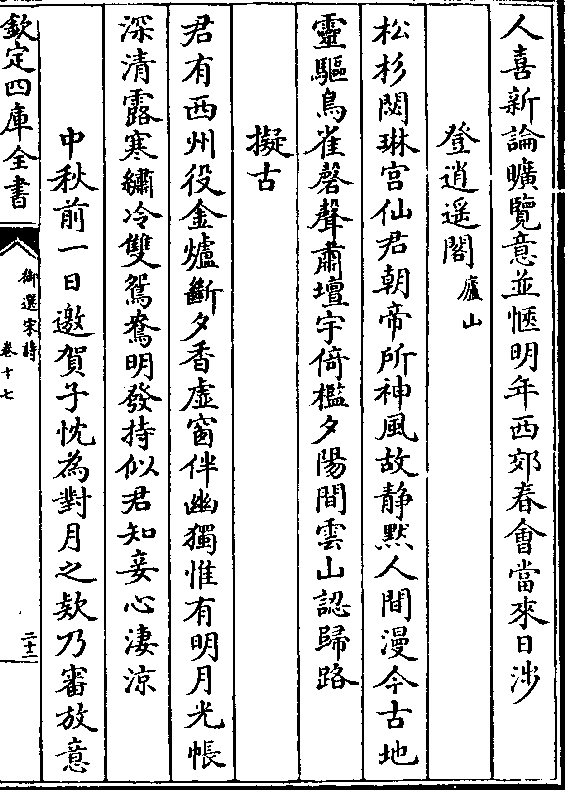 人喜新論曠覽意並愜明年西郊春會當來日涉
登逍遥閣廬山
松杉閟琳宫仙君朝帝所神風故静黙人間漫今古地
靈驅鳥雀磬聲肅壇宇倚檻夕陽間雲山認歸路
擬古
君有西州役金爐斷夕香虚窗伴幽獨惟有明月光帳
深清露寒繡冷雙鴛鴦明發持似君知妾心淒涼
中秋前一日邀賀子忱為對月之欵乃審放意
欽定四庫全書
御選宋詩
卷十七
二十二